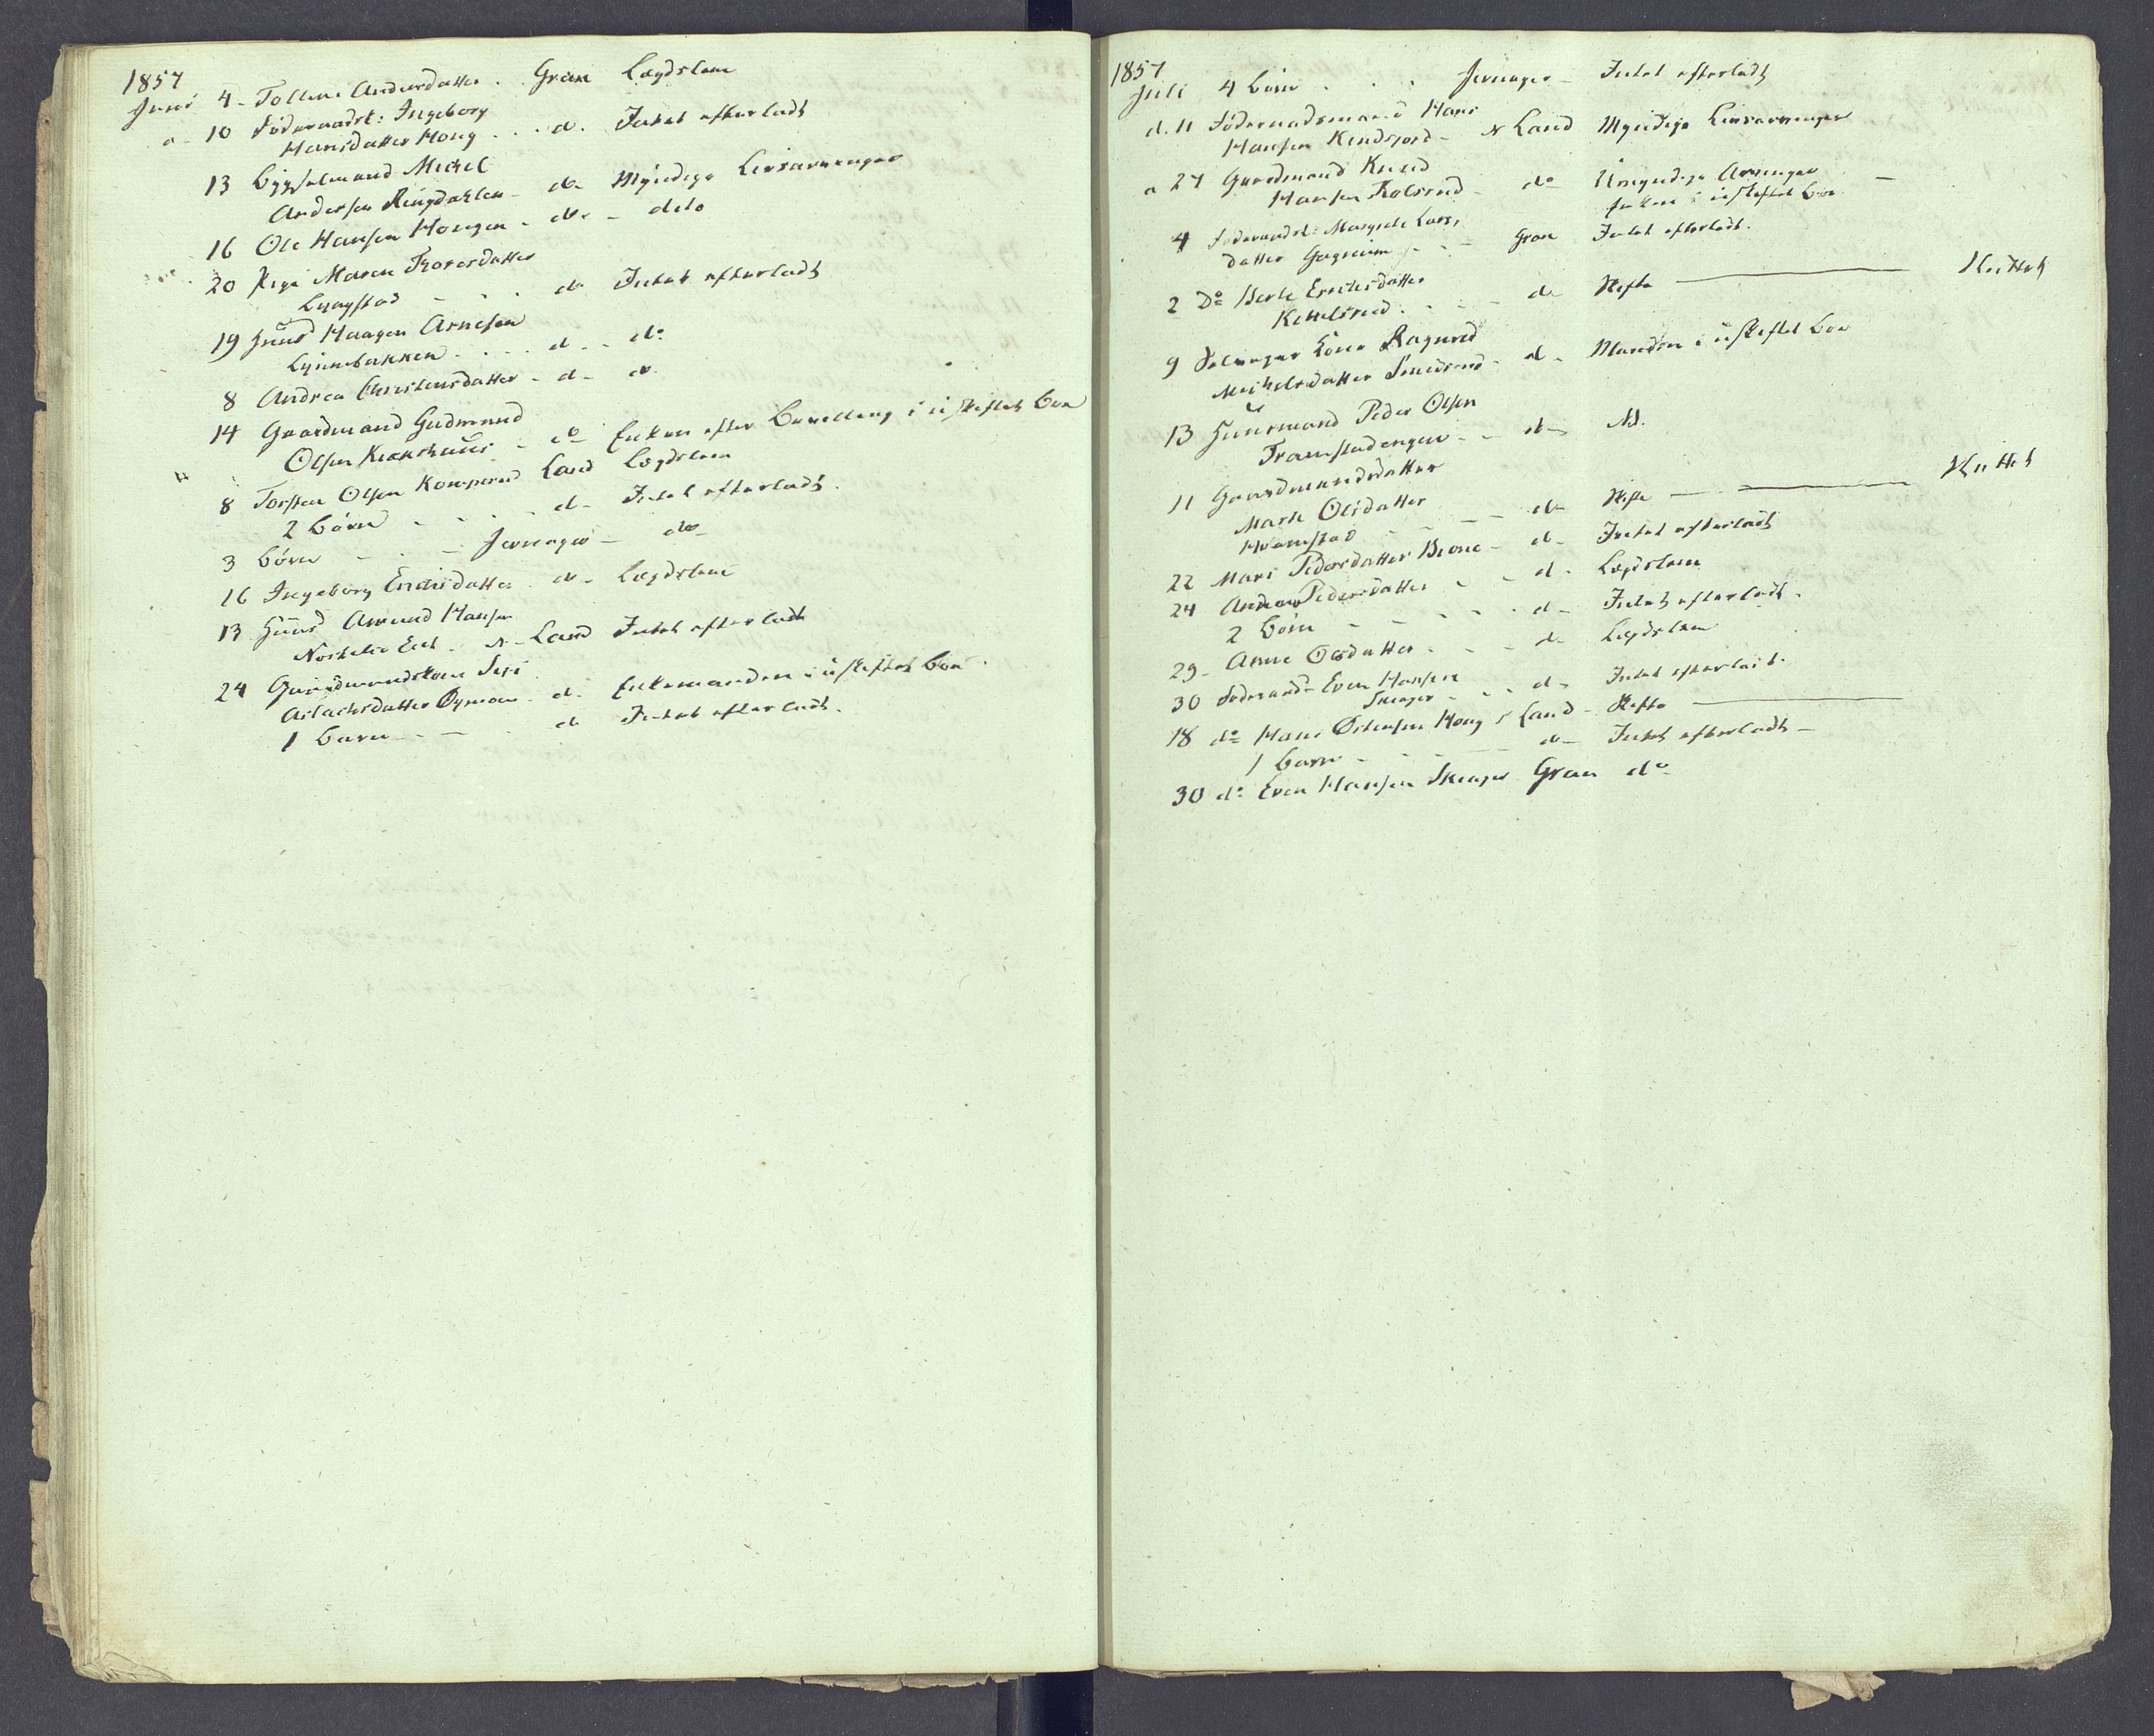 1857
Juni 4 - Anders datter . Gran Lægdslem
a - 10 Föderaadsk: Ingeborg
Hansdatter Hong . . . d. Intet efterladt
13 Bygselmand Mickel
Andersen Ringdahlen - do. Myndige Livsarvinger
16 Ole Hansen Hongen - do. - dito
20 Pige Maren Thorersdatter
- . . do Intet efterladt
19 Huus Haagen Arnesen
. . . . d. . do
8 Andrea Christensdatter - d - do
14 Gaardmand Gudmund
Olsen - do Enken efter Bevilling i uskiftet Boe
8 Torsten Olsen Land Lægdslem
2 Børn - - - - d - Intet efterladt.
3 børn - . - Jevnager - do
16 Ingeborg Endrisdatter - do - Lægdslem
13 Huus Amund Hansen
N - Land Intet efterladt
24 Gaardmandskone Siri
Aslachsdatter - d. Enkemanden i uskiftet Boe.
1 Barn - - - do Intet efterladt.
1857
Juli 4 Børn . . . Jevnager - Intet efterladt
d. 11 Föderaadsmand Hans
Hansen - N Land Myndige Livsarvinger
a 27 Gaardmand Knud
Hansen Kolsrud - do Umyndige Arvinger -
Enken i uskiftet Boe
4 Föderaadsk: Margrethe Lars,
datter . . - Gran Intet efterladt.
2 Do Berthe Erichsdatter
Kittelsrud . . . - do Skifte - Sluttet
9 Selveger Kone Ragnild
Michelsdatter Smedsrud - d - Manden i uskiftet Boe
13 Huusmand Peder Olsen
Framstadengen - - do - Do.
11 Gaardmandsdatter
Marte Olsdatter
Framstad - - - - do - Skifte - Sluttet
22 Mari Pedersdatter - d - Intet efterladt
24 Andrea Pedersdatter - - d - Lægdslem
2 Børn - - - . . d - Intet efterladt.
29 - Anne Olsdatter . . - do Lægdslem
30 Föderaads Even Hansen
. . . d - Intet efterladt.
18 do Hans Østensen Hong S Land - Skifte -
1 Barn - - - - do - Intet efterladt -
30 do Even Hansen Gran do